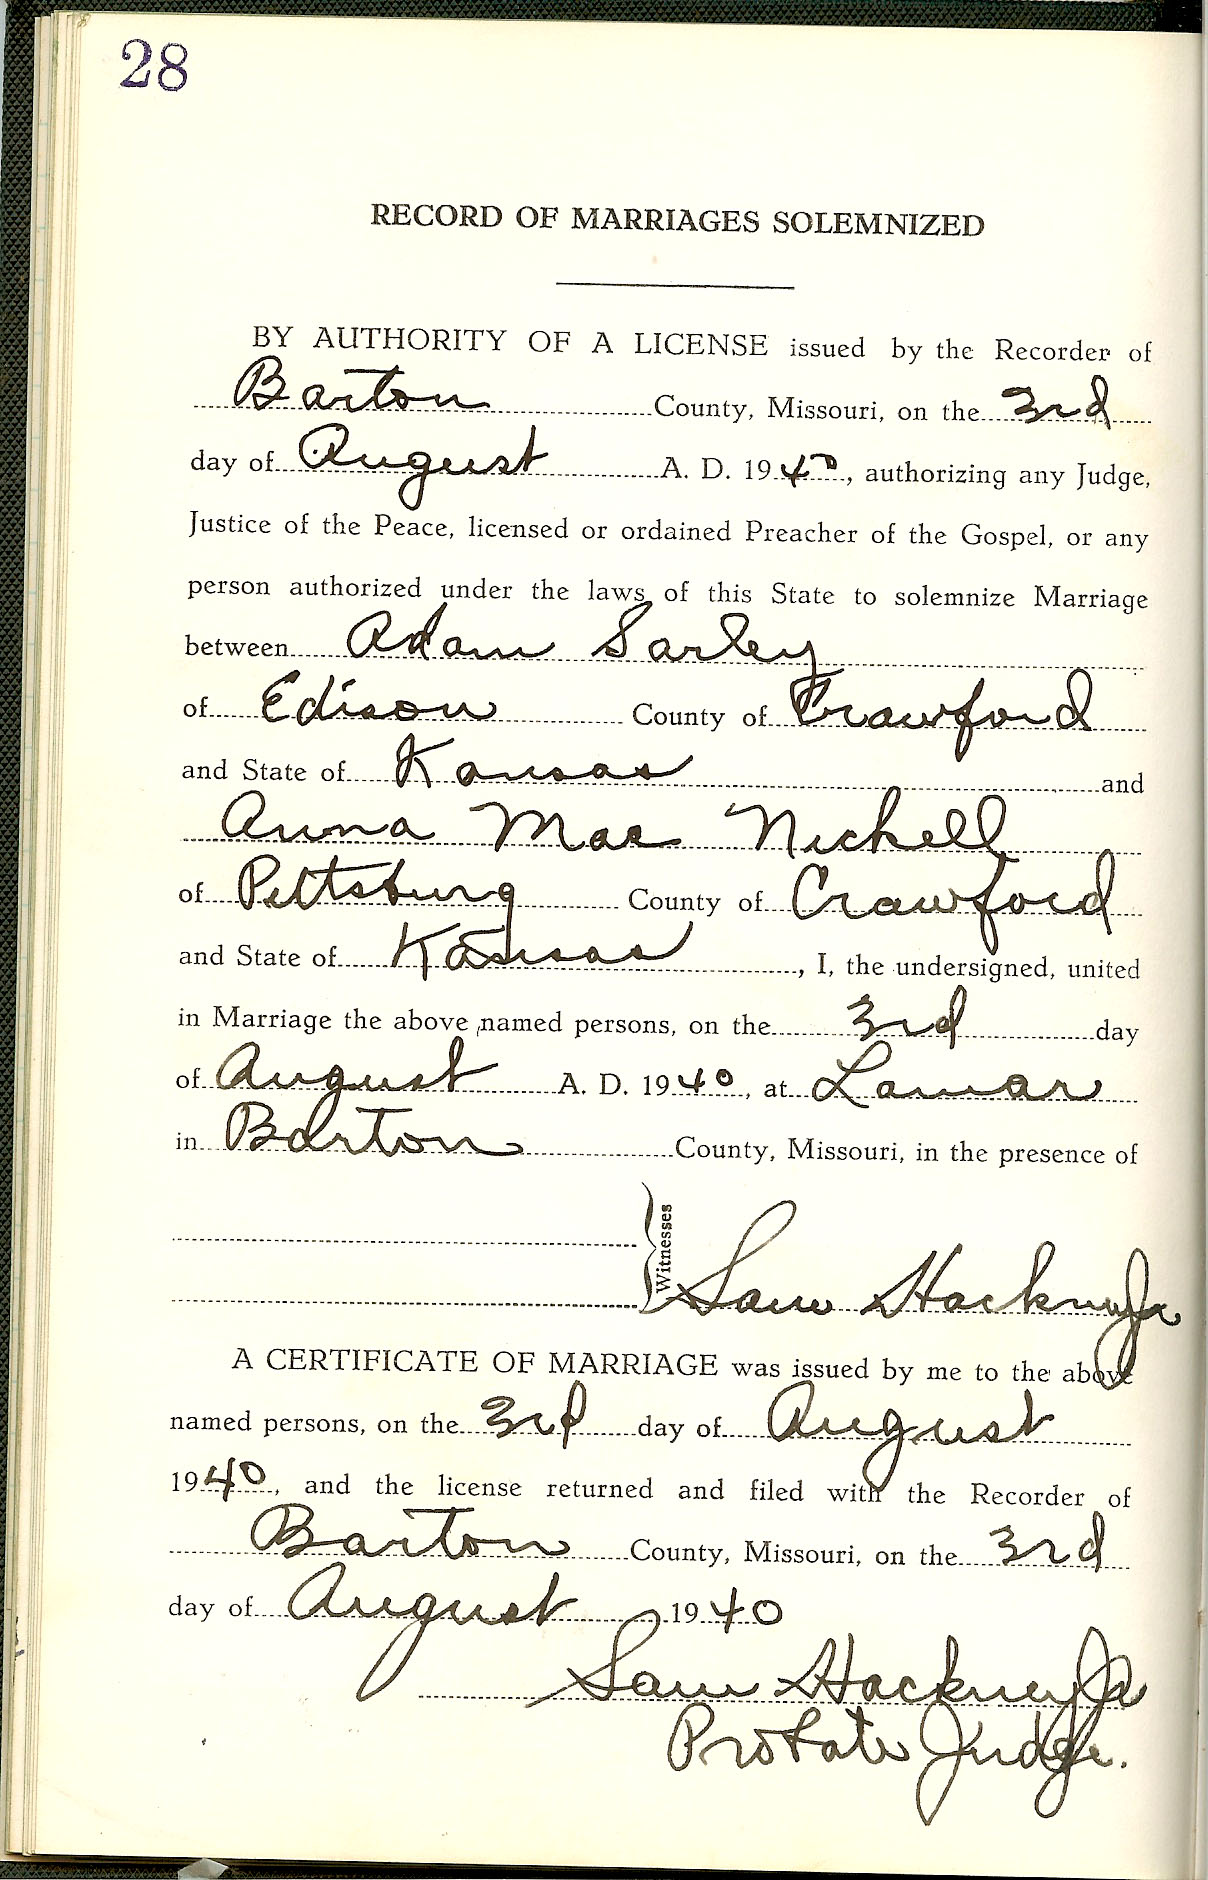 28
RECORD OF MARRIAGES SOLEMNIZED
BY AUTHORITY OF A LICENSE issued by the Recorder of
Barton County, Missouri, on the 3rd
day of August A. D. 1940, authorizing any Judge,
Justice of the Peace, licensed or ordained Preacher of the Gospel, or any
person authorized under the laws of this State to solemnize Marriage
between Adam Sarley
of Edison County of Crawford
and State of Kansas and
Anna Mae Nichell
of Pittsburg County of Crawford
and State of Kansas, I, the undersigned, united
in Marriage the above named persons, on the 3rd day
of August A. D. 1940, at Lamar
in Barton County, Missouri, in the presence of
Witnesses
Sam Hackney Jr
A CERTIFICATE OF MARRIAGE was issued by me to the above
named persons, on the 3rd day of August
1940, and the license returned and filed with the Recorder of
Barton County, Missouri, on the 3rd
day of August 1940
Sam Hackney Jr
Probate Judge.